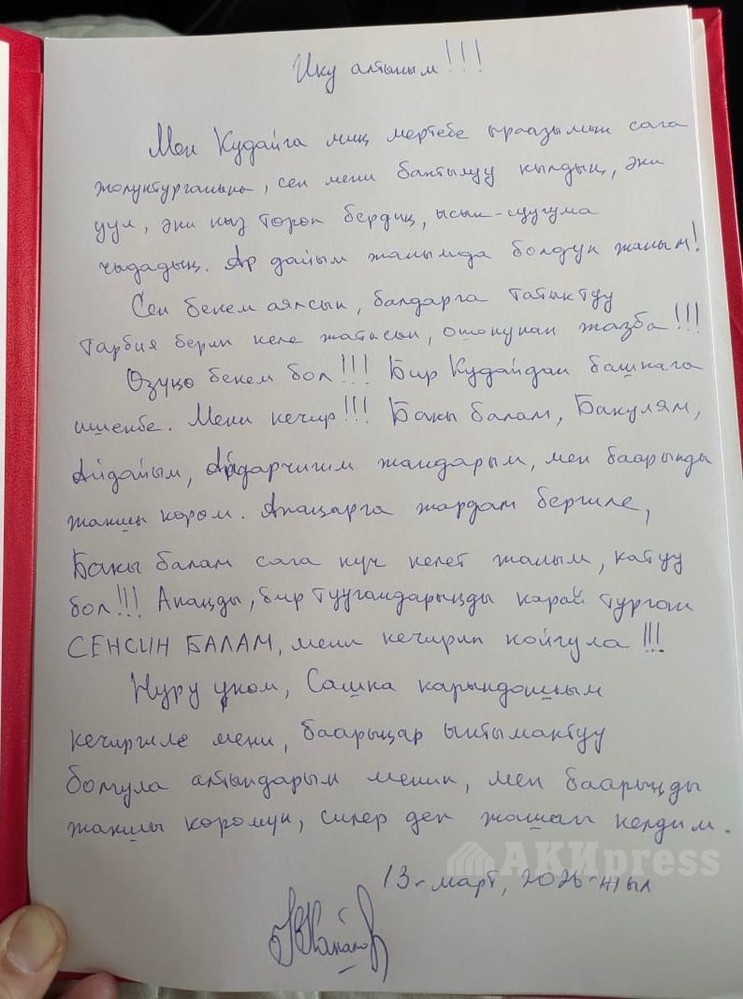 Ику алтыным!!!
Мен Кудайга миң мертебе ыраазымын сага
жолуктурганына, сен мени бактылуу кылдың, эки
уул, эки кыз төрөп бердиң, ысык-суугума
чыдадың. Ар дайым жанымда болдуң жаным!
Сен бекем аялсың, балдарга татыктуу
тарбия берип келе жатасың, ошонунан жазба!!!
Өзүңө бекем бол!!! Бир Кудайдан башкага
ишенбе. Мени кечир!!! Бакы балам, Бакулям,
Айдайым, Айдарчигим жандарым, мен баарыңды
жакшы көрөм. Апаңарга жардам бергиле,
Бакы балам сага күч келет жаным, катуу
бол!!! Апаңды, бир туугандарыңды карай турган
СЕНСИҢ БАЛАМ, мени кечирип койгула!!!
Нуру үкөм, Сашка карындашым
кечиргиле мени, баарыңар ынтымактуу
болгула алтындарым менин, мен баарыңды
жакшы көрөмүн, силер деп жашап келдим.
13-март, 2026-жыл
АКИpress